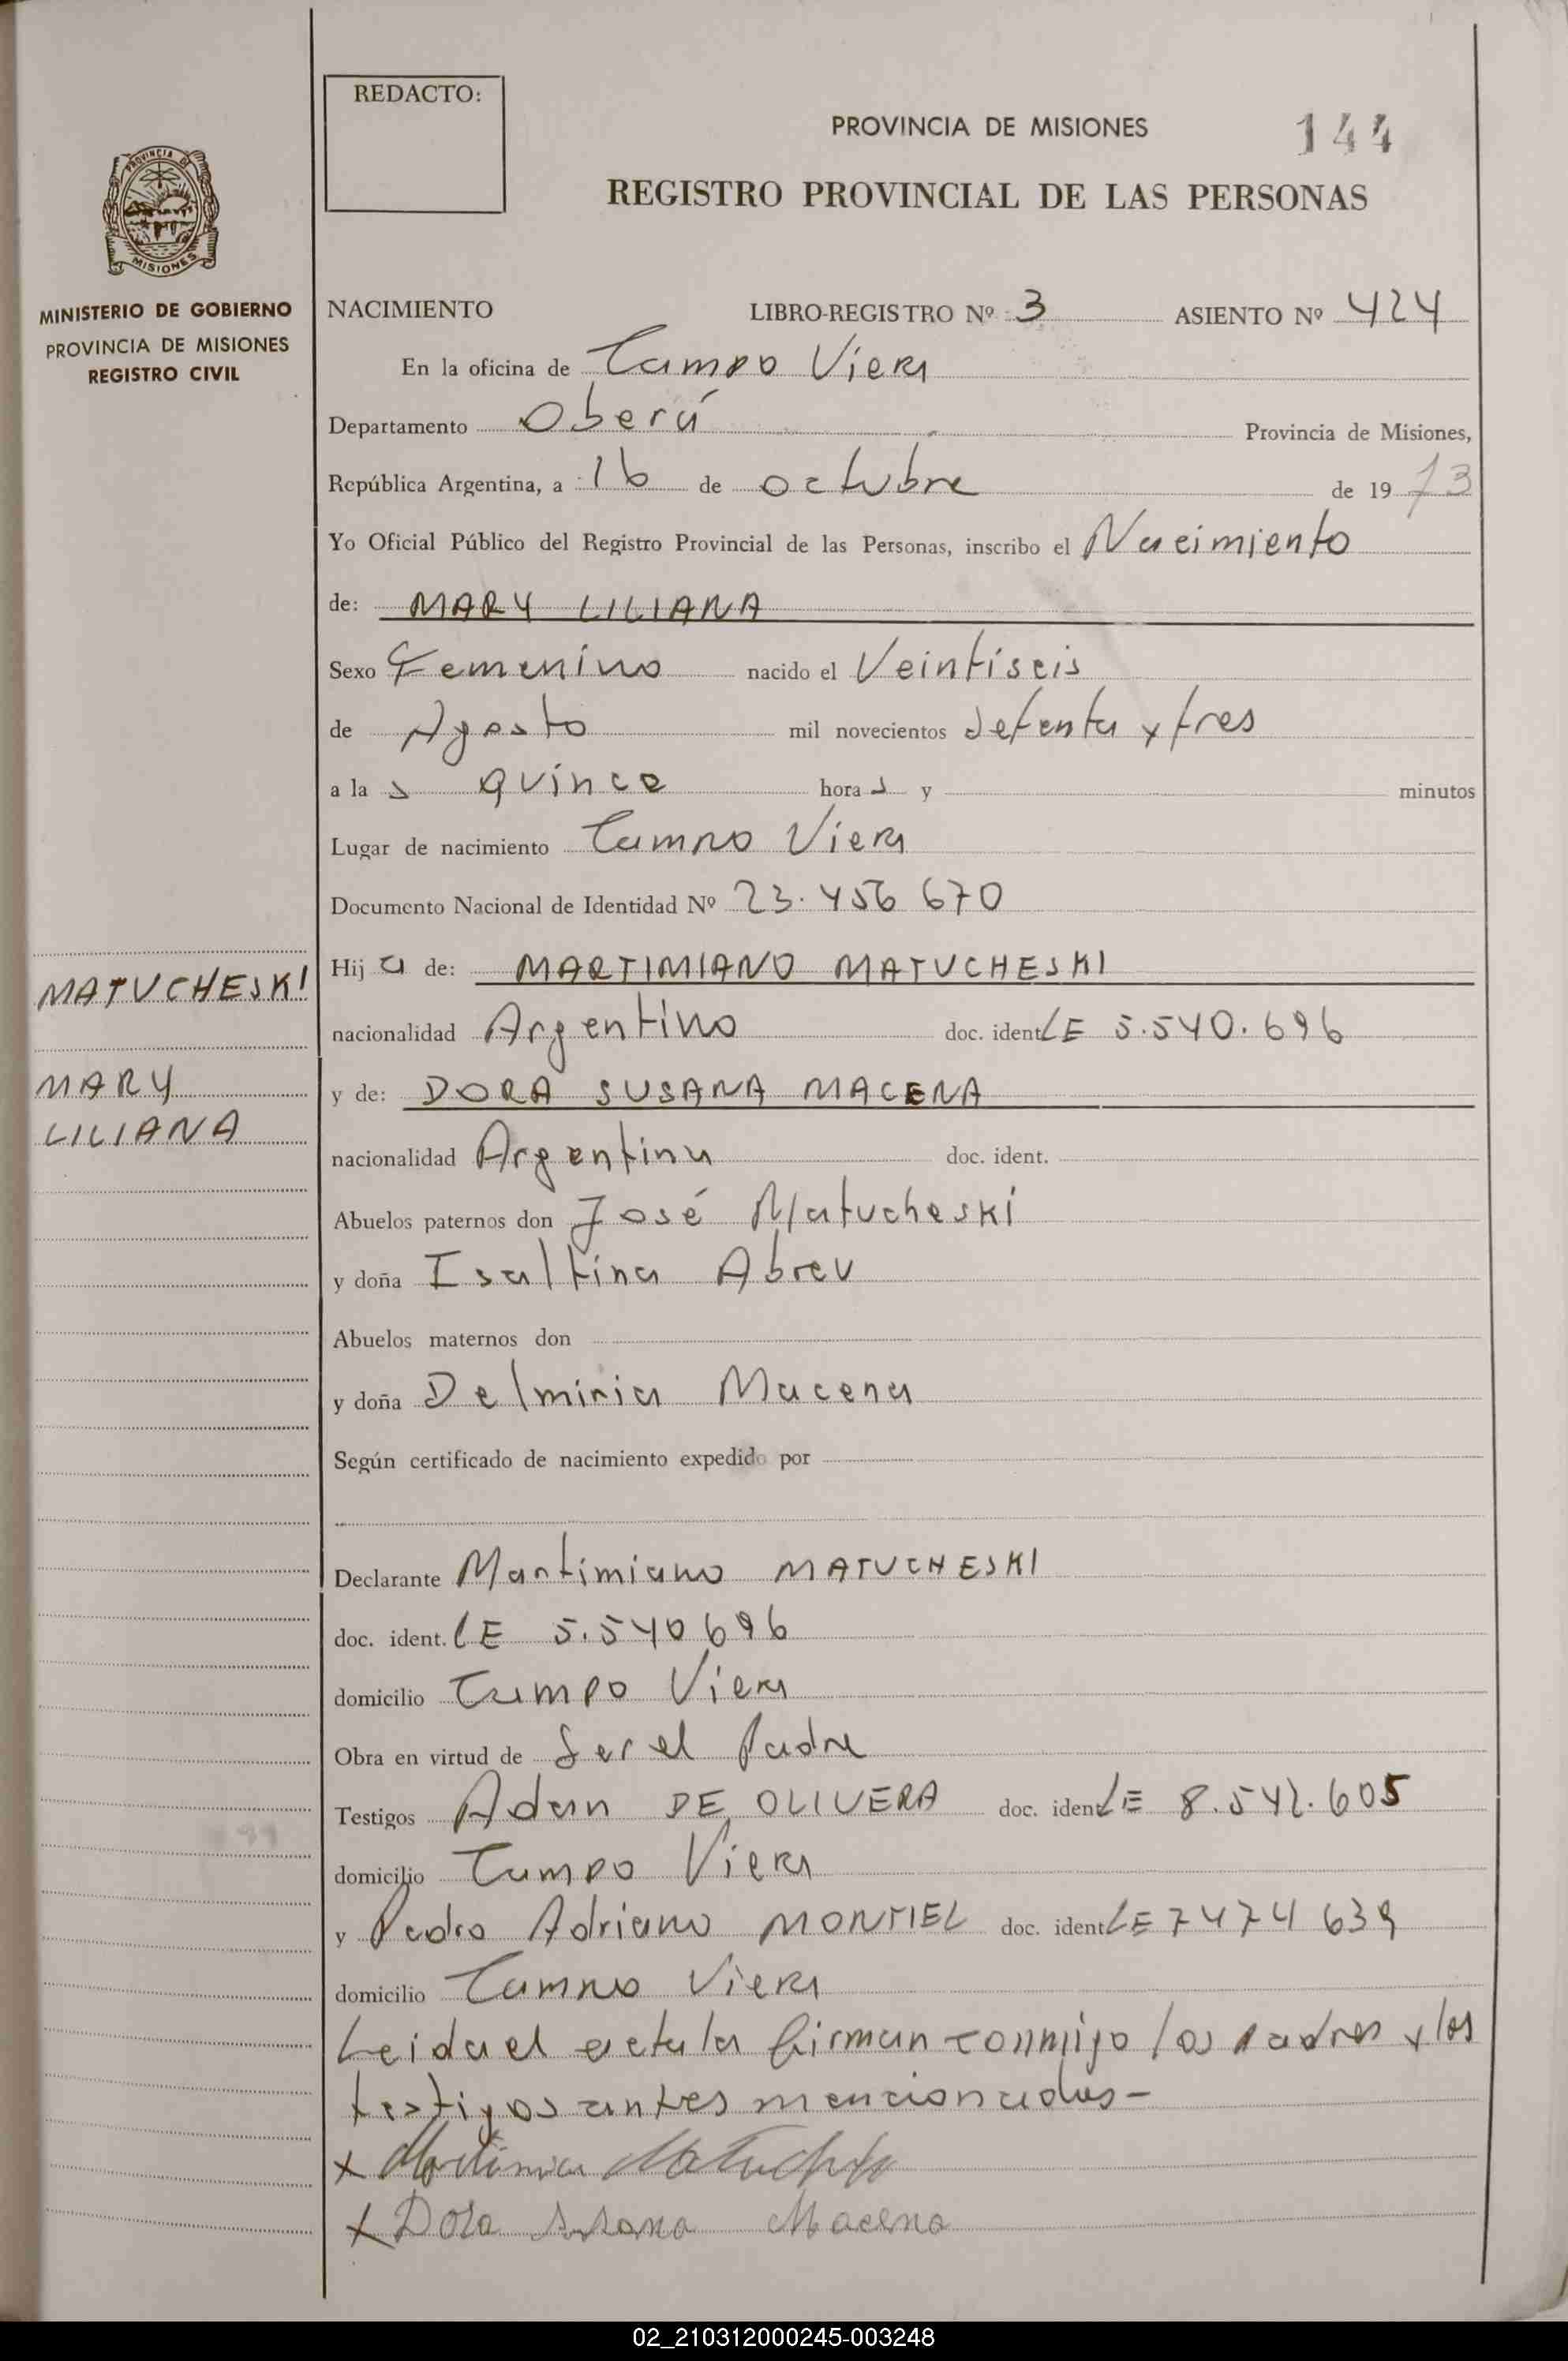 REDACTO:
PROVINCIA DE MISIONES
144
REGISTRO PROVINCIAL DE LAS PERSONAS
PROVINCIA DE
MISIONES
MINISTERIO DE GOBIERNO
PROVINCIA DE MISIONES
REGISTRO CIVIL
NACIMIENTO LIBRO-REGISTRO Nº 3 ASIENTO Nº 424
En la oficina de Campo Viera
Departamento Oberá Provincia de Misiones,
República Argentina, a 16 de octubre de 1973
Yo Oficial Público del Registro Provincial de las Personas, inscribo el Nacimiento
de: MARY LILIANA
Sexo Femenino nacido el Veintiseis
de Agosto mil novecientos setenta y tres
a las quince horas y minutos
Lugar de nacimiento Campo Viera
Documento Nacional de Identidad Nº 23.456 670
Hija de: MARTIMIANO MATUCHESKI
MATUCHESKI
nacionalidad Argentino doc. ident LE 5.540.696
MARY
y de: DORA SUSANA MACENA
LILIANA
nacionalidad Argentina doc. ident.
Abuelos paternos don José Matucheski
y doña Isaltina Abreu
Abuelos maternos don
y doña Delmiria Macena
Según certificado de nacimiento expedido por
Declarante Martimiano MATUCHESKI
doc. ident. LE 5.540696
domicilio Campo Viera
Obra en virtud de Ser el Padre
Testigos Adan DE OLIVERA doc. ident LE 8.542.605
domicilio Campo Viera
y Pedro Adriano MONTIEL doc. ident LE 7474639
domicilio Campo Viera
Leida el acta la firman conmigo los padres y los
testigos antes mencionados-
x Martimia Matuche
x Dora Susana Macena
02_210312000245-003248